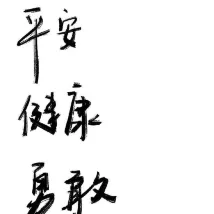 平安
健康
勇敢